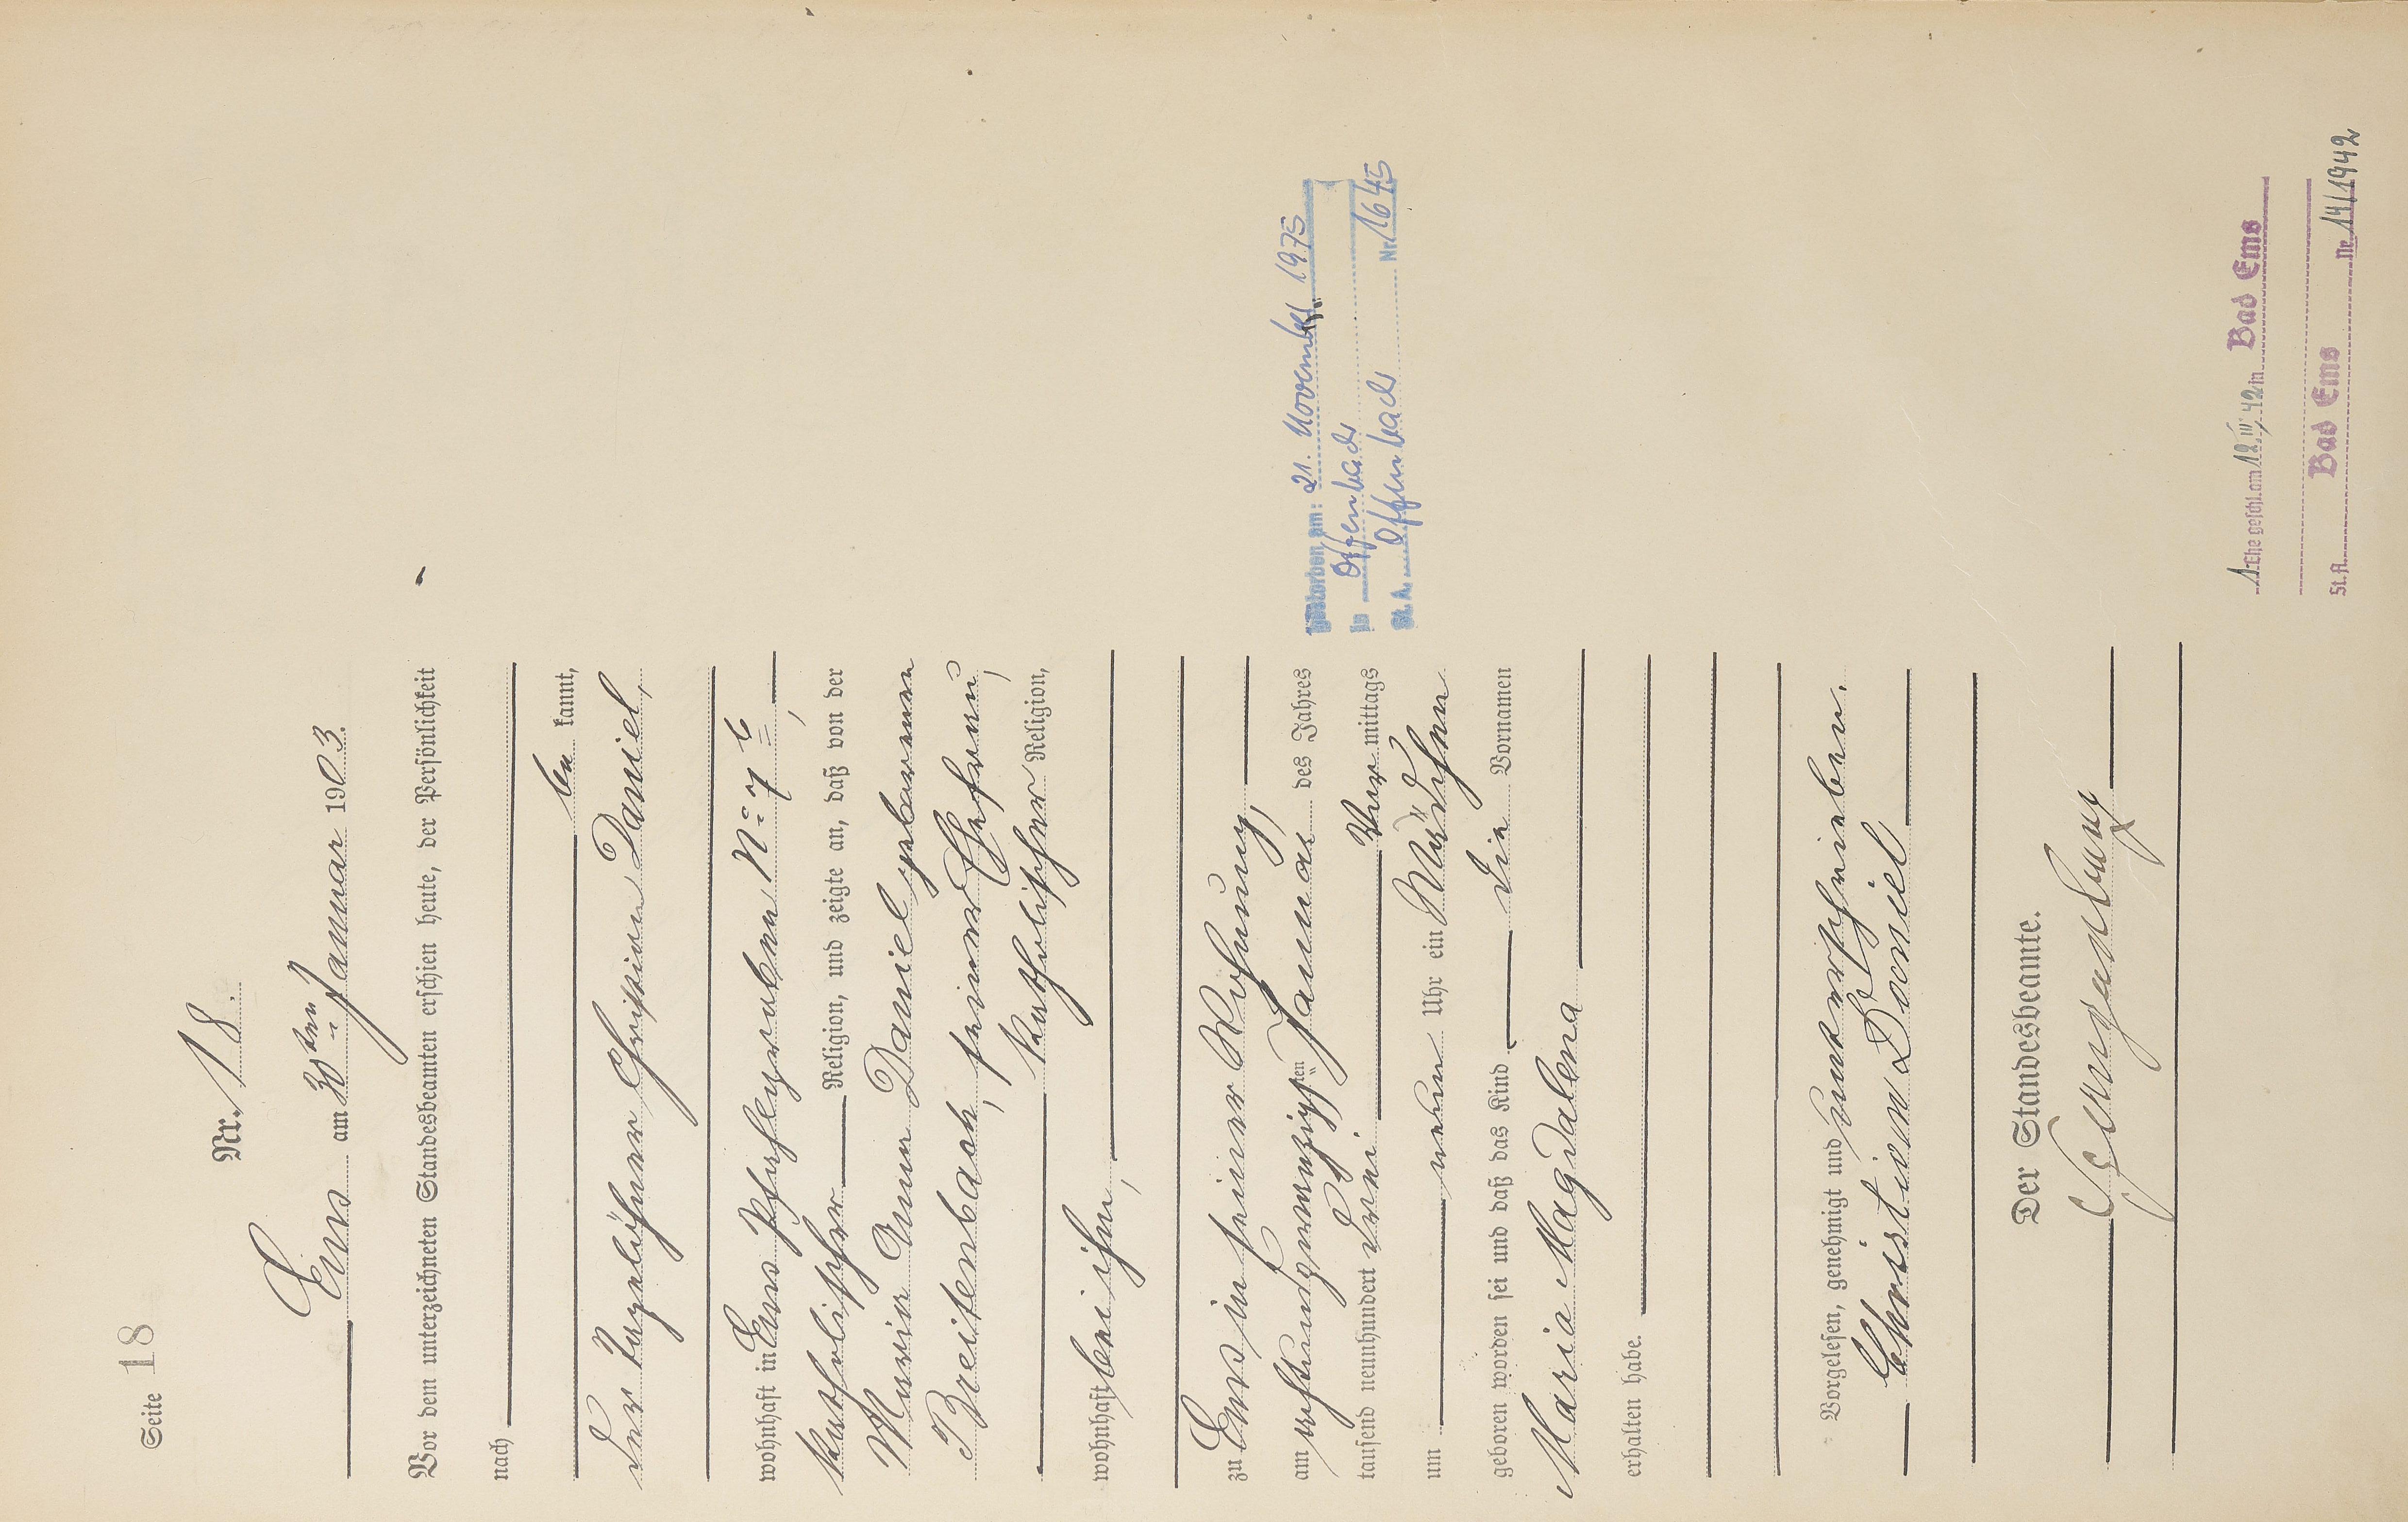 Seite 18
Nr. 18.
Ems am 30ten Januar 1903.
Vor dem unterzeichneten Standesbeamten erschien heute, der Persönlichkeit
nach
be kannt,
der Tagelöhner Christian Daniel,
wohnhaft in Ems Pfahlgraben No 76,
katholischer Religion, und zeigte an, daß von der
Maria Anna Daniel geborenen
Breitenbach, seiner Ehefrau,
katholischer Religion,
wohnhaft bei ihm,
zu Ems in seiner Wohnung,
am achtundzwanzigsten Januar des Jahres
tausend neunhundert drei Vor mittags
um neun Uhr ein Mädchen
geboren worden sei und daß das Kind die Vornamen
Maria Magdalena
erhalten habe.
Vorgelesen, genehmigt und unterschrieben.
Christian Daniel
Der Standesbeamte.
Gestorben am: 21. November 1975
in Offenbach
St. A. Offenbach Nr. 1645
1. Ehe geschl. am 12.III.42 in Bad Ems
St. A. Bad Ems Nr. 14/1942